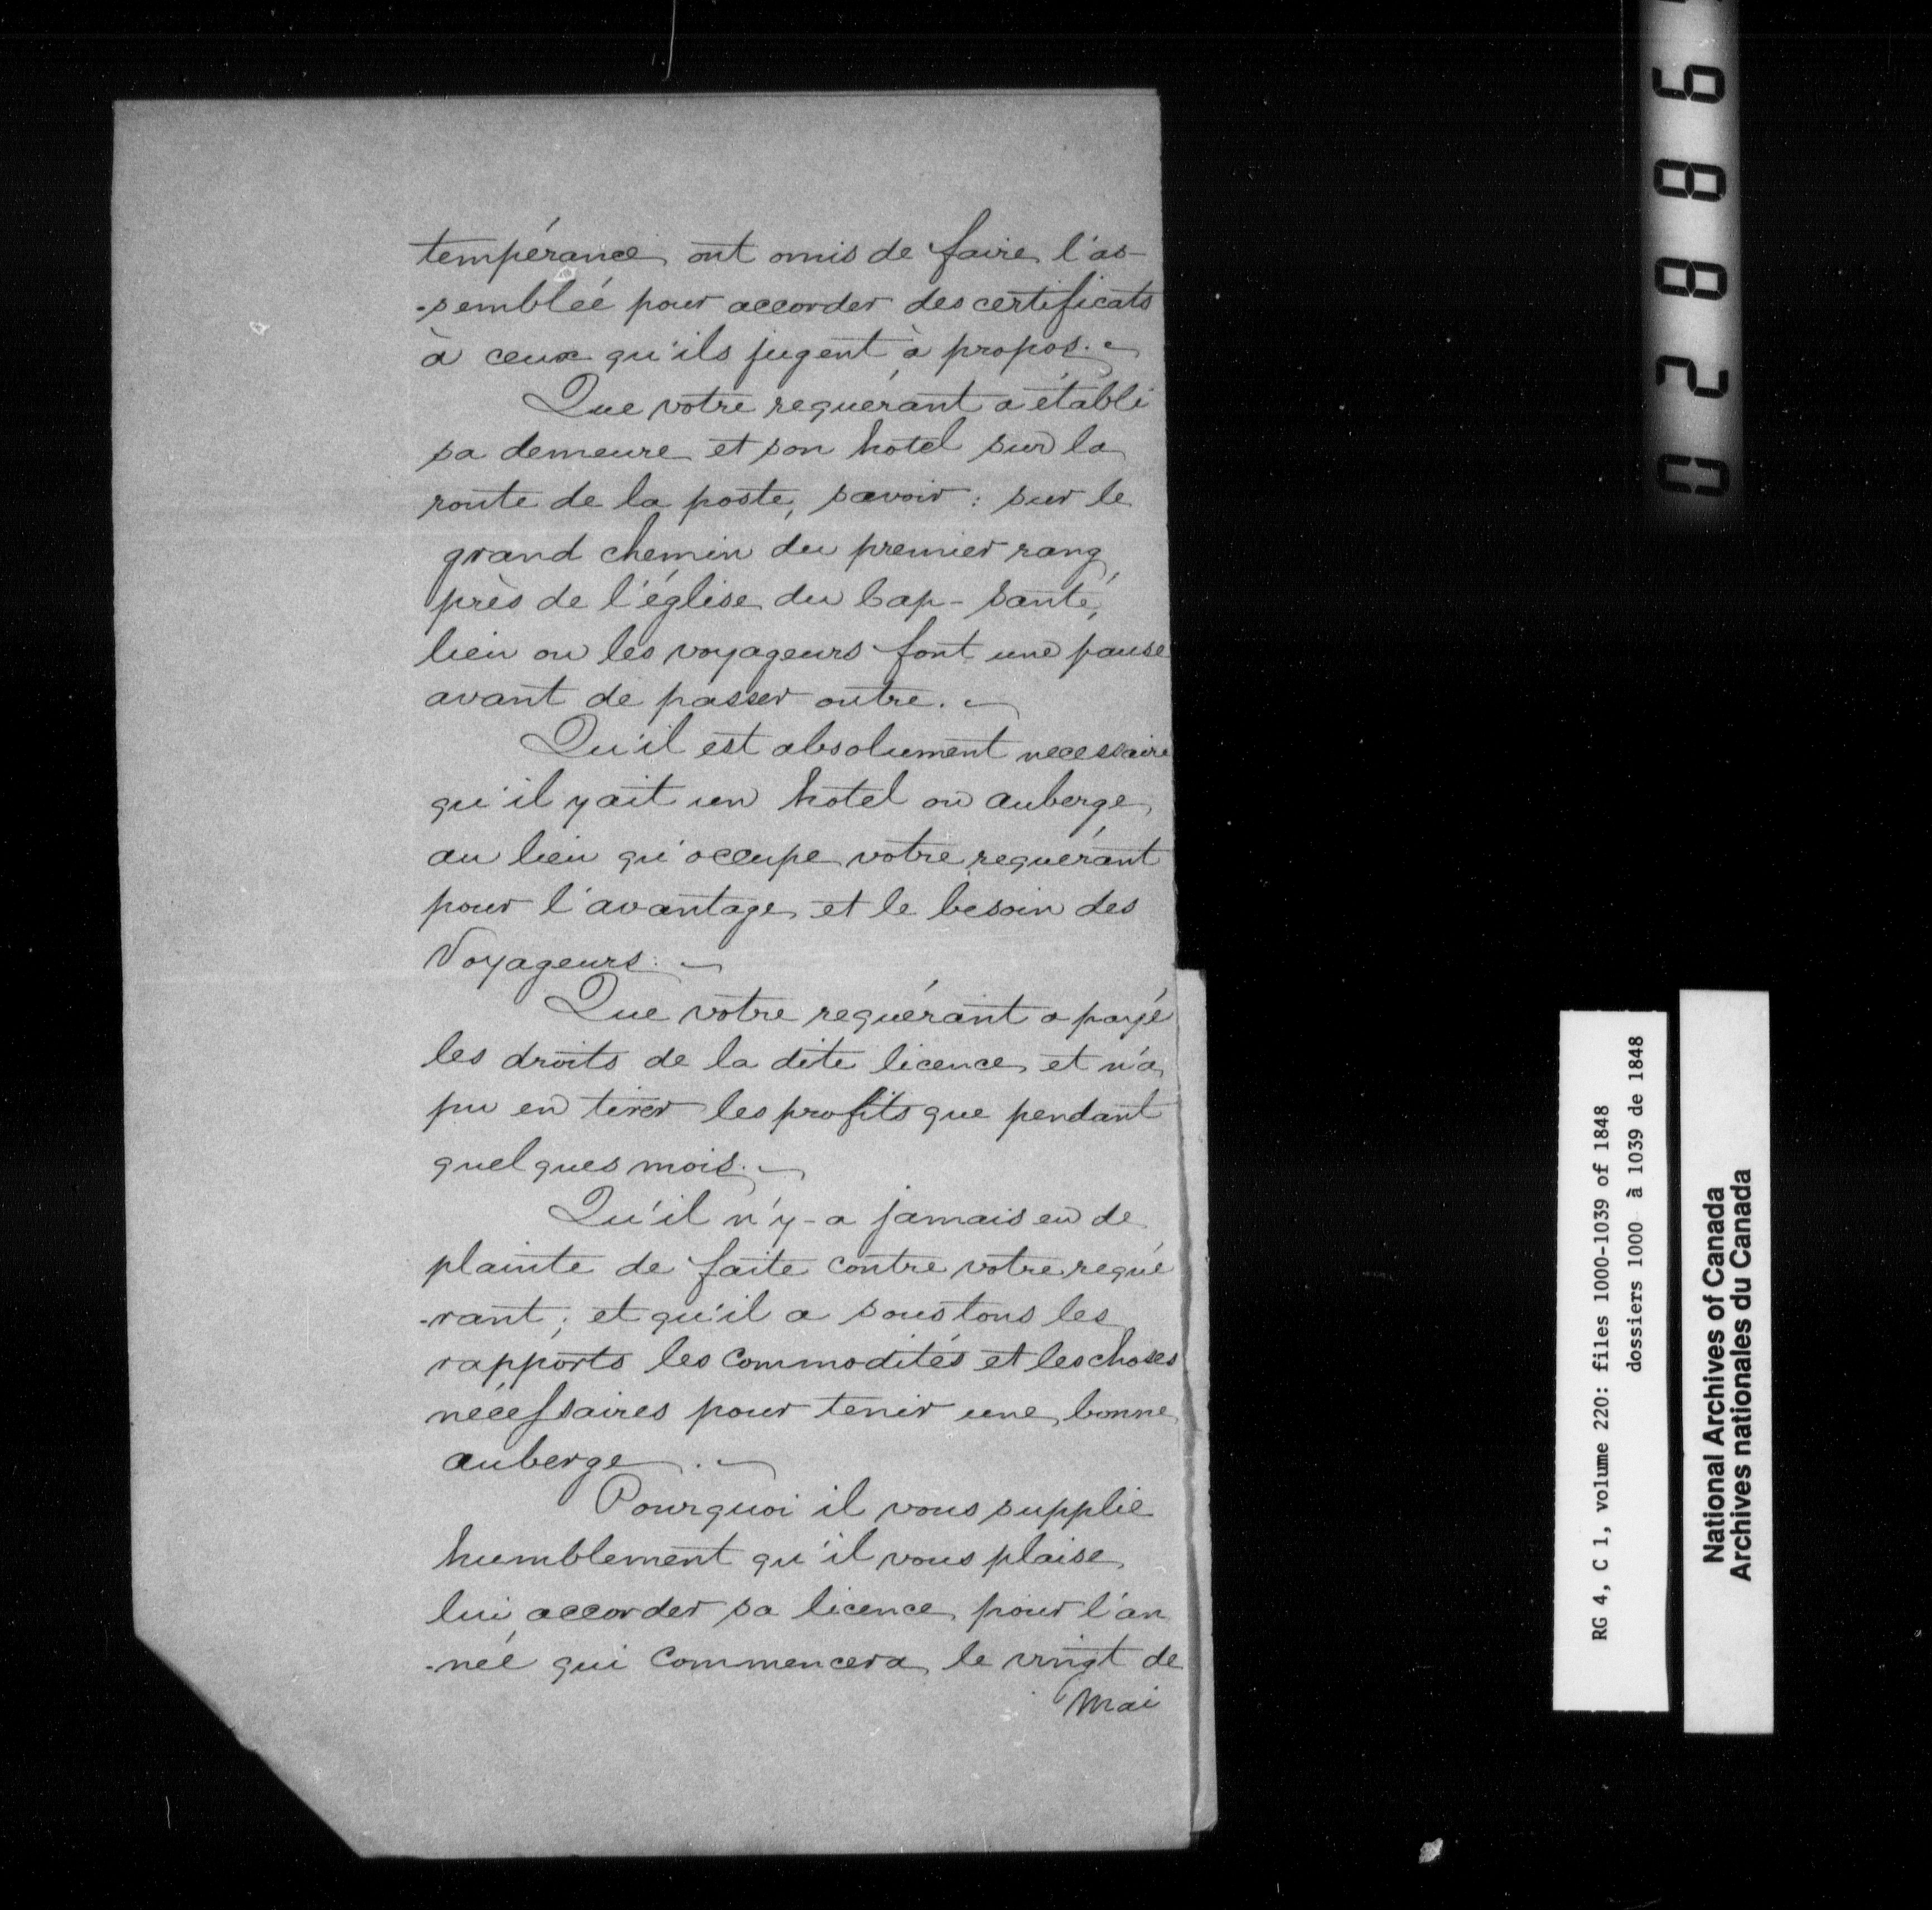 tempérance ont omis de faire l'as-
-sembleé pour accorder des certificats
à ceux qu'ils jugent à propos.
Que votre requérant a établi
sa demeure et son hotel sur la
route de la poste, savoir : sur le
grand chemin du premier rang
près de l'église du Cap-Santé,
lieu ou les voyageurs font une pause
avant de passer outre.
Qu'il est absolument necessaire
qu'il y ait un hotel ou auberge
au lieu qu'occupe votre requérant
pour l'avantage et le besoin des
Voyageurs.
Que votre requérant a payé
les droits de la dite licence et n'a
pu en tirer les profits que pendant
quelques mois.
Qu'il n'y-a jamais eu de
plainte de faite contre votre requé
-rant ; et qu'il a sous tous les
rapports les commodités et les choses
nécessaires pour tenir une bonne
auberge.
Pourquoi il vous supplie
humblement qu'il vous plaise
lui accorder sa licence pour l'an
-neé qui commencera le vingt de
Mai
RG 4, C 1, volume 220: files 1000-1039 of 1848
dossiers 1000 à 1039 de 1848
National Archives of Canada
Archives nationales du Canada